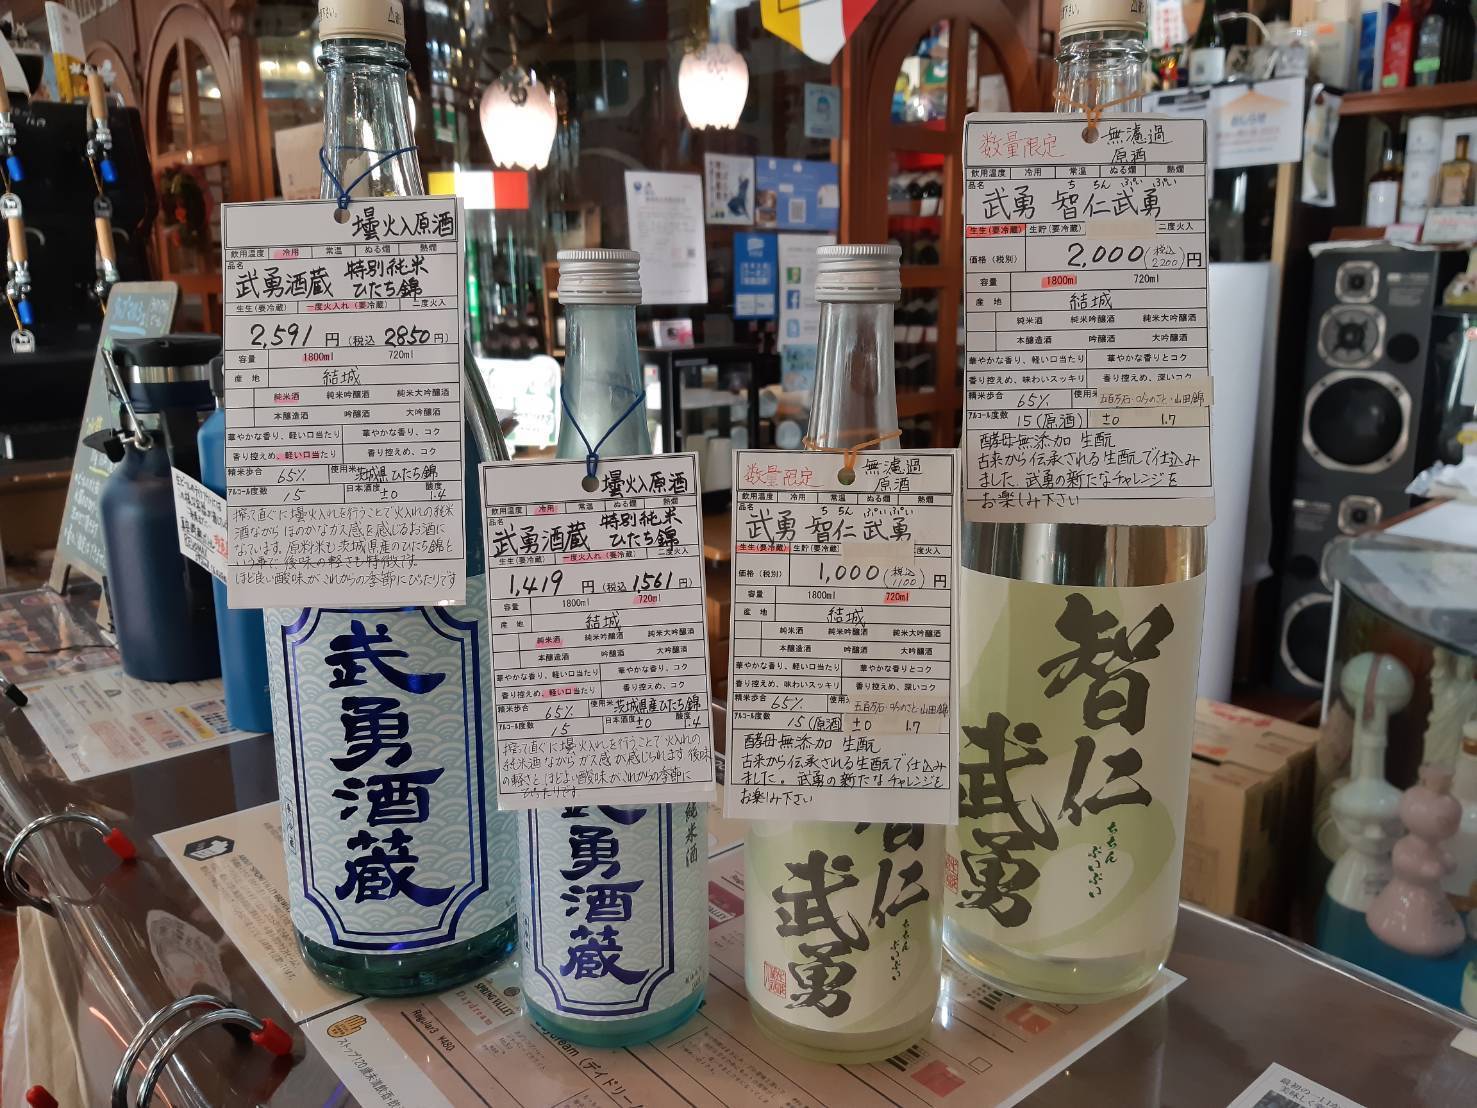 壜火入原酒
飲用温度 冷用 常温 ぬる燗 熱燗
品名
武勇酒蔵 特別純米
ひたち錦
生生(要冷蔵) 一度火入れ(要冷蔵) 二度火入
2,591 円 (税込 2850円)
容量 1800ml 720ml
産 地 結城
純米酒 純米吟醸酒 純米大吟醸酒
本醸造酒 吟醸酒 大吟醸酒
華やかな香り、軽い口当たり 華やかな香り、コク
香り控えめ、軽い口当たり 香り控えめ、コク
精米歩合 65% 使用米 茨城県ひたち錦
アルコール度数 15 日本酒度 ±0 酸度 1.4
搾って直ぐに壜火入れを行うことで火入れの純米
酒ながらほのかなガス感を感じるお酒に
なっています。原料米も茨城県産のひたち錦と
いう事で後味の軽さも特徴です。
ほど良い酸味がこれからの季節にぴったりです
武勇酒蔵
壜火入原酒
飲用温度 冷用 常温 ぬる燗 熱燗
品名
武勇酒蔵 特別純米
ひたち錦
生生(要冷蔵) 一度火入れ(要冷蔵) 二度火入
1,419 円 (税込 1,561円)
容量 1800ml 720ml
産 地 結城
純米酒 純米吟醸酒 純米大吟醸酒
本醸造酒 吟醸酒 大吟醸酒
華やかな香り、軽い口当たり 華やかな香り、コク
香り控えめ、軽い口当たり 香り控えめ、コク
精米歩合 65% 使用米 茨城県産ひたち錦
アルコール度数 15 日本酒度 ±0 酸度 1.4
搾って直ぐに壜火入れを行うことで火入れの
純米酒ながらガス感が感じられます 後味
の軽さとほどよい酸味がこれからの季節に
ぴったりです
純米酒
武勇酒蔵
数量限定 無濾過
原酒
飲用温度 冷用 常温 ぬる燗 熱燗
品名 ち ちん ぶい ぶい
武勇 智仁武勇
生生(要冷蔵) 生貯(要冷蔵) 二度火入
価格(税別) 1,000 (税込 1100) 円
容量 1800ml 720ml
産 地 結城
純米酒 純米吟醸酒 純米大吟醸酒
本醸造酒 吟醸酒 大吟醸酒
華やかな香り、軽い口当たり 華やかな香りとコク
香り控えめ、味わいスッキリ 香り控えめ、深いコク
精米歩合 65% 五百万石・ゆめのさと・山田錦
アルコール度数 15(原酒) ±0 1.7
酵母無添加 生酛
古来から伝承される生酛で仕込み
ました。武勇の新たなチャレンジを
お楽しみ下さい
智仁
武勇
ちちん
ぶいぶい
数量限定 無濾過
原酒
飲用温度 冷用 常温 ぬる燗 熱燗
品名 ち ちん ぶい ぶい
武勇 智仁武勇
生生(要冷蔵) 生貯(要冷蔵) 二度火入
価格(税別) 2,000 (税込 2200) 円
容量 1800ml 720ml
産 地 結城
純米酒 純米吟醸酒 純米大吟醸酒
本醸造酒 吟醸酒 大吟醸酒
華やかな香り、軽い口当たり 華やかな香りとコク
香り控えめ、味わいスッキリ 香り控えめ、深いコク
精米歩合 65% 五百万石・ゆめのさと・山田錦
アルコール度数 15(原酒) ±0 1.7
酵母無添加 生酛
古来から伝承される生酛で仕込み
ました。武勇の新たなチャレンジを
お楽しみ下さい
智仁
武勇
ちちん
ぶいぶい
SPRING VALLEY
Daydream
Regular3 ¥480
ストップ!20歳未満飲酒